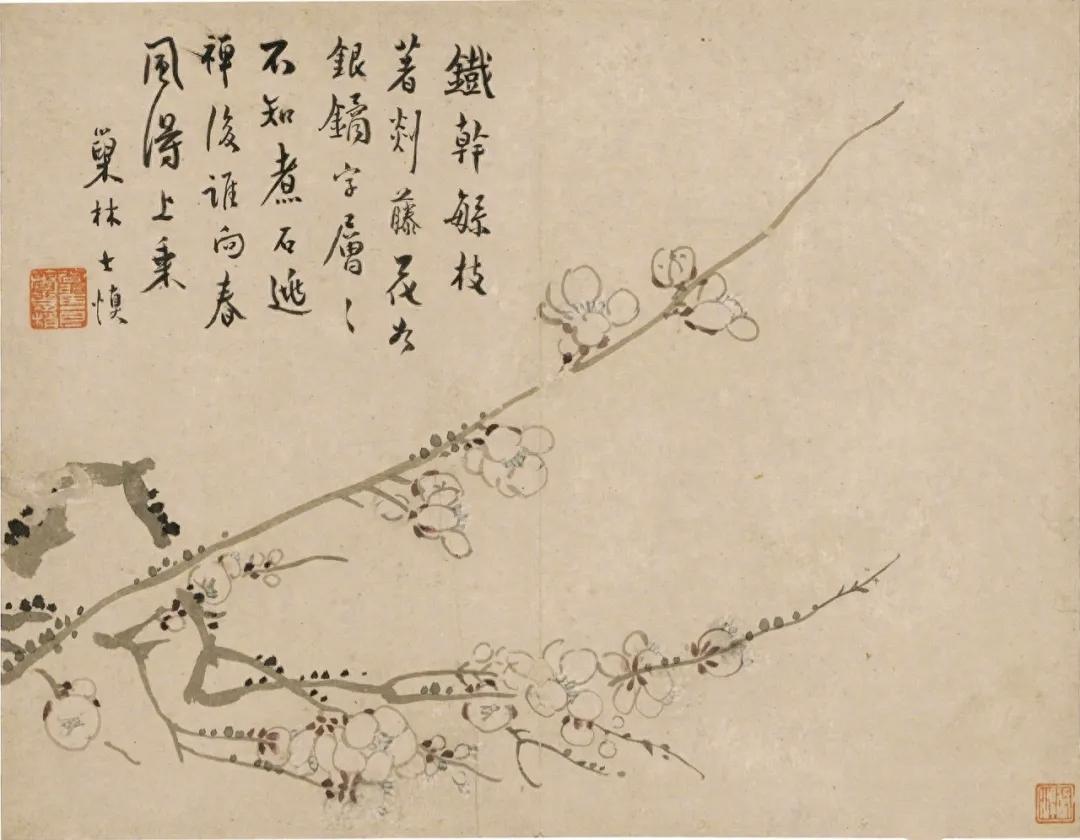 鐵幹緐枝
著剡藤花為
銀鏑字層〻
不知煮石逃
禅後誰向春
風得上乘
巢林士慎